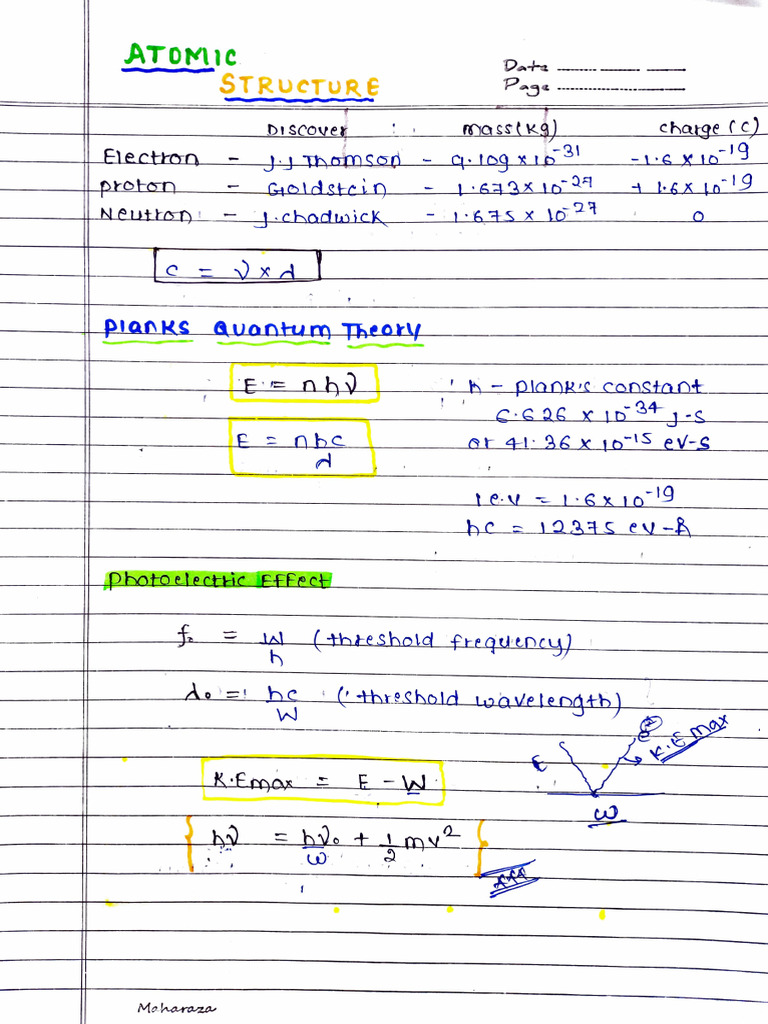 ATOMIC
STRUCTURE
Date
Page
Discover : mass(kg) charge (c)
Electron - J.J Thomson - 9.109 × 10⁻³¹ -1.6 × 10⁻¹⁹
proton - Goldstein - 1.673 × 10⁻²⁷ + 1.6 × 10⁻¹⁹
Neutron - J. chadwick - 1.675 × 10⁻²⁷ 0
c = ν × λ
Planks Quantum Theory
E = nhν h - plank's constant
6.626 × 10⁻³⁴ J-S
E = nhc/λ or 41.36 × 10⁻¹⁵ ev-s
1e.v = 1.6 × 10⁻¹⁹
hc = 12375 ev-Å
Photoelectric Effect
f₀ = W/h (threshold frequency)
λ₀ = hc/W (threshold wavelength)
E K.E max
K.Emax = E - W
W
hν = hν₀ + 1/2 mv²
w
Maharaza